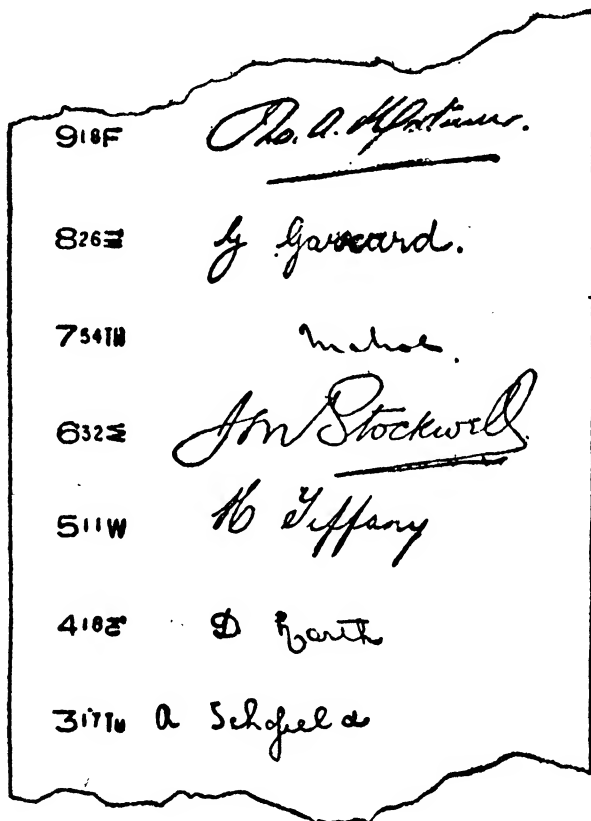 918F Tho. A. Mortimer.
826 G Garrard.
754TH Mchol.
632 Jm Stockwell
511W H Tiffany
418 D North
317TU A Schofield